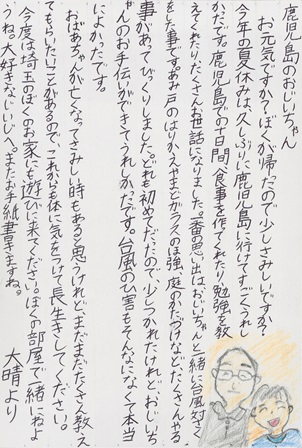 鹿児島のおじいちゃん
お元気ですか？ぼくが帰ったので少しさみしいですか？
今年の夏休みは、久しぶりに鹿児島に行けてすごくうれし
かったです。鹿児島での十日間、食事を作てくれたり、勉強を教
えてくれたり、たくさんお世話になりました。一番の思い出は、おじいちゃんと一緒に台風対さく
をした事です。あみ戸のはりかえやまどガラスのほ強、庭のかたづけなど、たくさんやる
事があってびっくりしました。どれも初めてだったので少しつかれたけれど、おじいち
ゃんのお手伝いができてうれしかったです。台風のひ害もそんなになくて本当
によかったです。
おばあちゃんが亡くなってさみしい時もあると思うけれど、まだまだたくさん教え
てもらいたいことがあるので、これからも体に気をつけて長生きしてください。
今度は埼玉のぼくのお家にも遊びに来てください。ぼくの部屋で一緒にねよ
うね。大好きなじいじへ。またお手紙書きますね。
大晴より